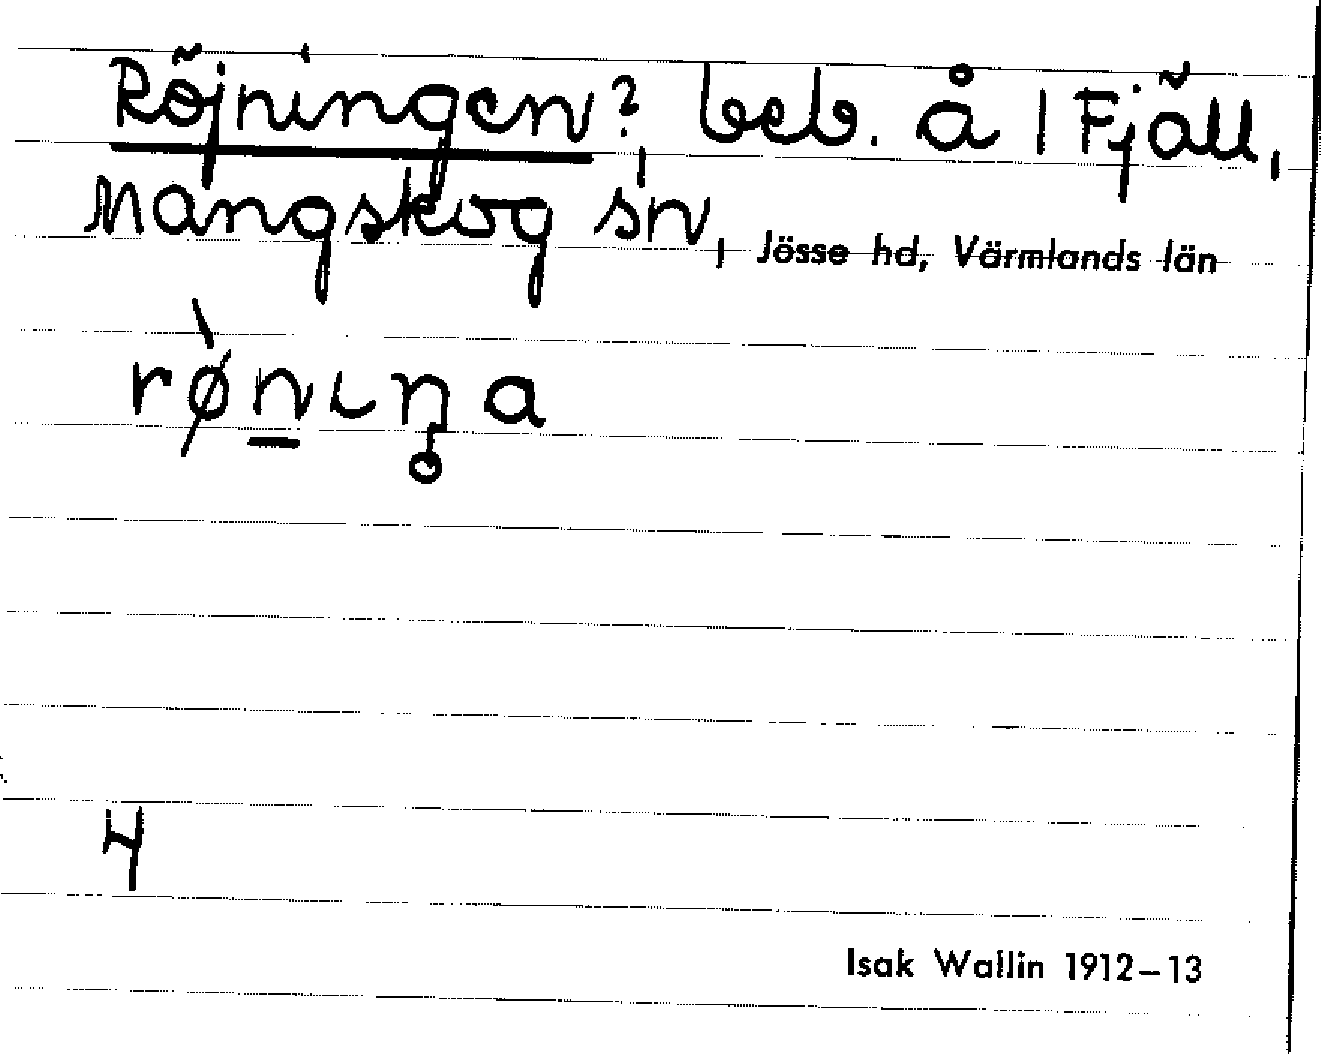 Röjningen?, beb. å 1 Fjäll,
Mangskog sn, Jösse hd, Värmlands län
rø̀nıŋa
4
Isak Wallin 1912–13